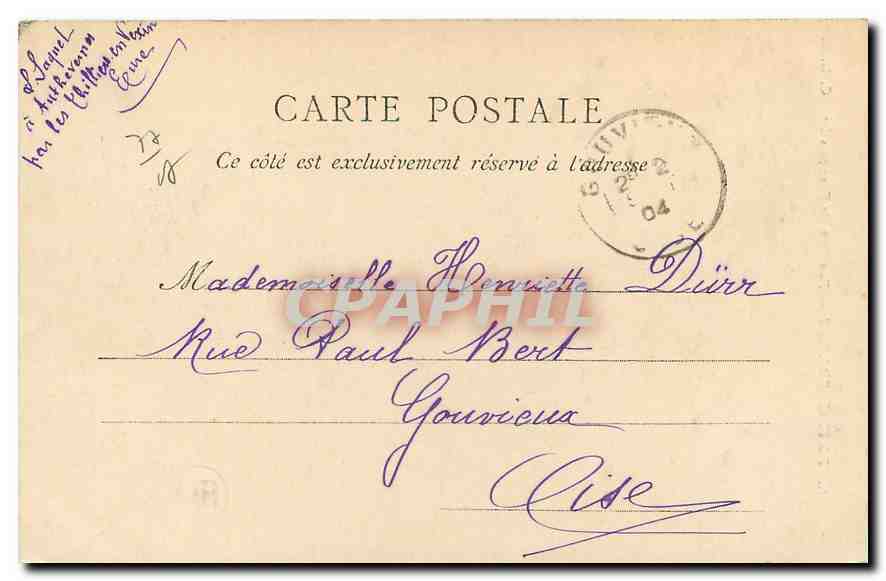 L Laquet
à Authevernes
par les Thilliers en Vexin
Eure
CARTE POSTALE
Ce côté est exclusivement réservé à l'adresse
GOUVIEUX
2
04
Mademoiselle Henriette Dürr
CPAPHIL
Rue Paul Bert
Gouvieux
Oise